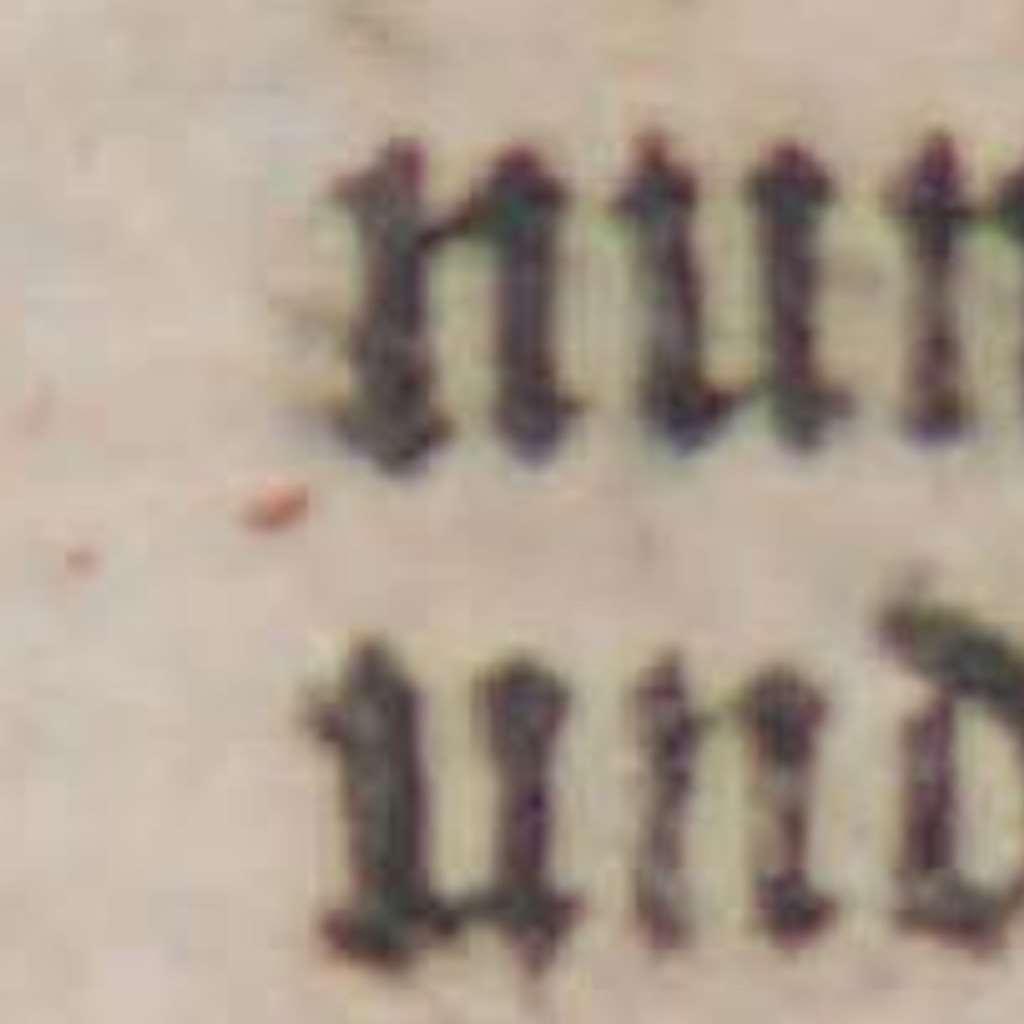 nun
und